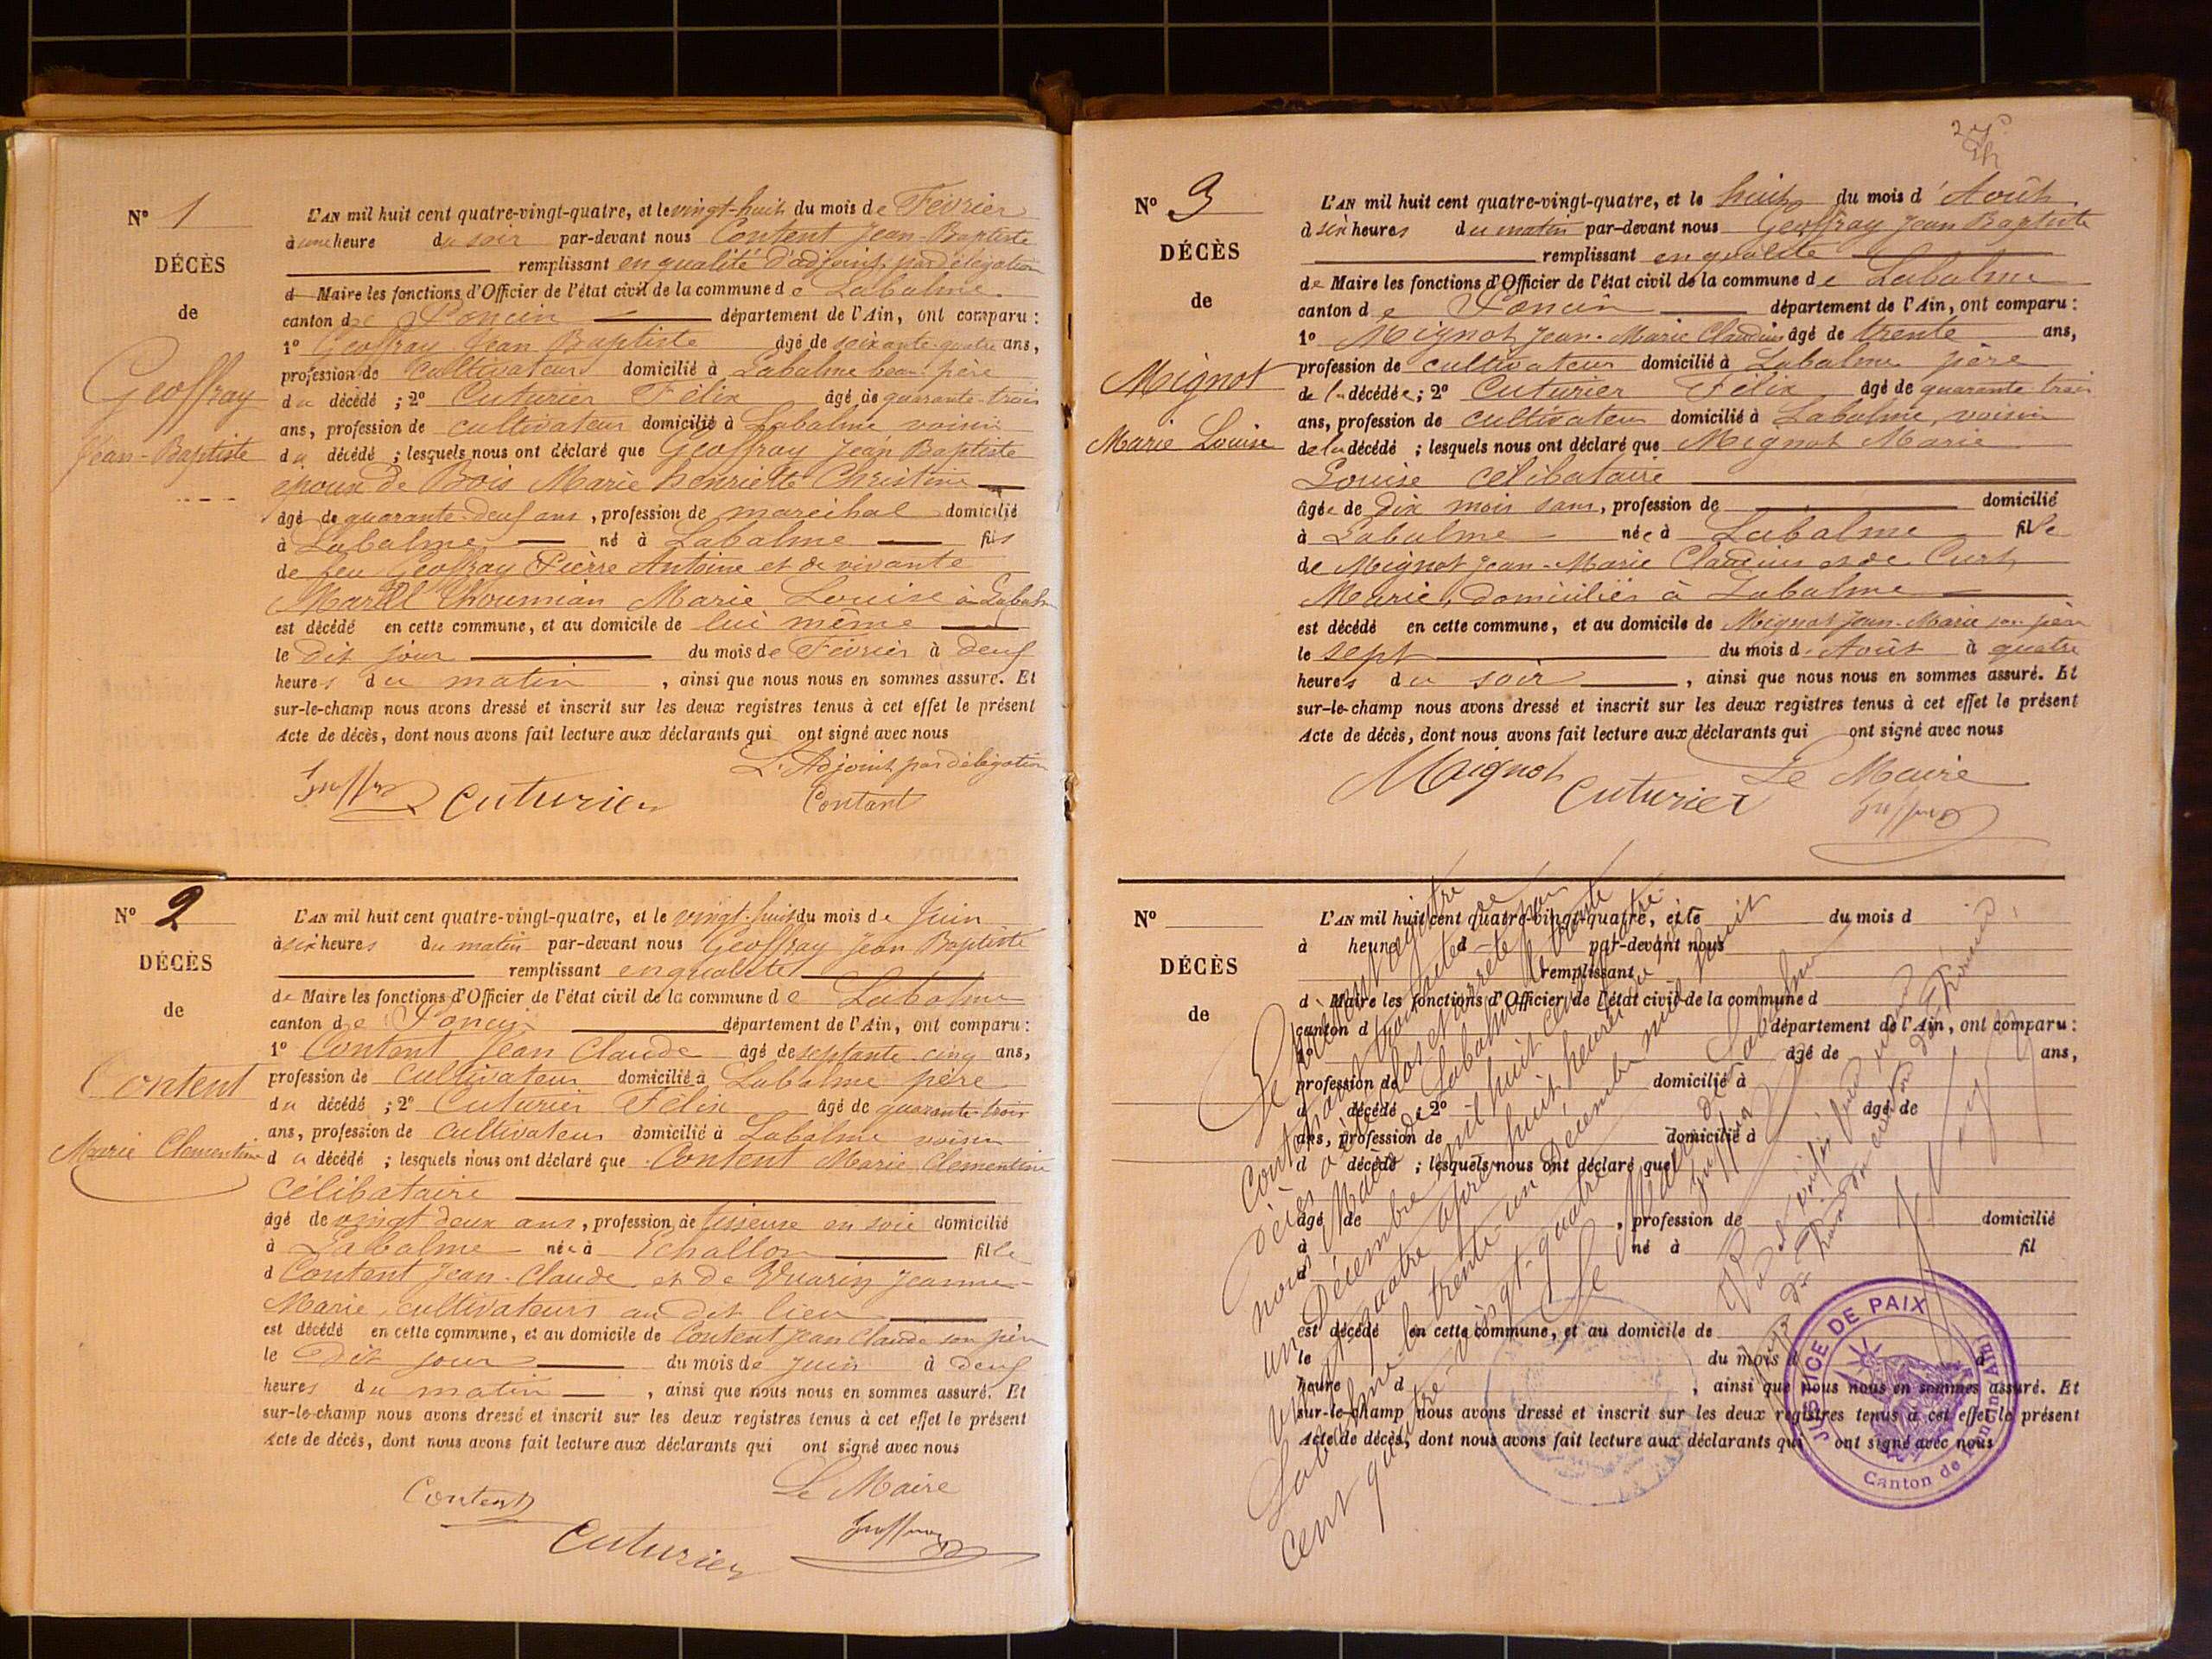 N° 1
DÉCÈS
de
Geoffray
Jean-Baptiste
L'AN mil huit cent quatre-vingt-quatre, et le vingt-huit du mois de Février
à une heure du soir par-devant nous Content Jean-Baptiste
remplissant en qualité d'adjoint par délégation
d Maire les fonctions d'Officier de l'état civil de la commune de Labalme
canton de Poncin département de l'Ain, ont comparu :
1° Geoffray Jean Baptiste âgé de soixante-quatre ans,
profession de cultivateur domicilié à Labalme beau-père
du décédé ; 2° Cuturier Félix âgé de quarante-trois
ans, profession de cultivateur domicilié à Labalme voisin
du décédé ; lesquels nous ont déclaré que Geoffray Jean Baptiste
époux de Bois Marie henriette Christine
âgé de quarante-deux ans, profession de maréchal domicilié
à Labalme né à Labalme fils
de feu Geoffray Pierre Antoine et de vivante
Marie Louise à Labalme
est décédé en cette commune, et au domicile de lui même
le dit jour du mois de Février à deux
heures du matin, ainsi que nous nous en sommes assuré. Et
sur-le-champ nous avons dressé et inscrit sur les deux registres tenus à cet effet le présent
Acte de décès, dont nous avons fait lecture aux déclarants qui ont signé avec nous
L'Adjoint par délégation
Cuturier Contant
N° 2
DÉCÈS
de
Content
Marie Clementine
L'AN mil huit cent quatre-vingt-quatre, et le vingt-huit du mois de Juin
à six heures du matin par-devant nous Geoffray Jean Baptiste
remplissant en qualité
de Maire les fonctions d'Officier de l'état civil de la commune de Labalme
canton de Poncin département de l'Ain, ont comparu :
1° Content Jean Claude âgé de septante-cinq ans,
profession de cultivateur domicilié à Labalme père
du décédé ; 2° Cuturier Félix âgé de quarante-trois
ans, profession de cultivateur domicilié à Labalme voisin
d u décédé ; lesquels nous ont déclaré que Content Marie Clementine
célibataire
âgé de vingt deux ans, profession de tisseuse en soie domicilié
à Labalme née à Echallon fille
d Content Jean-Claude et de Vuarin Jeanne-
Marie, cultivateurs au dit lieu
est décédé en cette commune, et au domicile de Content Jean Claude son père
le dit jour du mois de Juin à deux
heures du matin, ainsi que nous nous en sommes assuré. Et
sur-le-champ nous avons dressé et inscrit sur les deux registres tenus à cet effet le présent
Acte de décès, dont nous avons fait lecture aux déclarants qui ont signé avec nous
Content Le Maire
Cuturier
N° 3
DÉCÈS
de
Mignot
Marie Louise
L'AN mil huit cent quatre-vingt-quatre, et le huit du mois d'Août
à six heures du matin par-devant nous Geoffray Jean Baptiste
remplissant en qualité
de Maire les fonctions d'Officier de l'état civil de la commune de Labalme
canton de Poncin département de l'Ain, ont comparu :
1° Mignot Jean-Marie Claudius âgé de trente ans,
profession de cultivateur domicilié à Labalme père
de la décédée ; 2° Cuturier Félix âgé de quarante-trois
ans, profession de cultivateur domicilié à Labalme, voisin
de la décédé ; lesquels nous ont déclaré que Mignot Marie
Louise célibataire
âgée de dix mois sans, profession de domicilié
à Labalme née à Labalme fille
de Mignot Jean-Marie Claudius et de Curt
Marie, domiciliés à Labalme
est décédé en cette commune, et au domicile de Mignot Jean-Marie son père
le sept du mois d'Août à quatre
heures du soir, ainsi que nous nous en sommes assuré. Et
sur-le-champ nous avons dressé et inscrit sur les deux registres tenus à cet effet le présent
Acte de décès, dont nous avons fait lecture aux déclarants qui ont signé avec nous
Mignot Cuturier Le Maire
N°
DÉCÈS
de
L'AN mil huit cent quatre-vingt-quatre, et le du mois d
à heure d par-devant nous
remplissant
d Maire les fonctions d'Officier de l'état civil de la commune d
canton d département de l'Ain, ont comparu :
1° âgé de ans,
profession de domicilié à
d décédé ; 2° âgé de
ans, profession de domicilié à
d décédé ; lesquels nous ont déclaré que
âgé de , profession de domicilié
à né à fil
d
est décédé en cette commune, et au domicile de
le du mois d à
heure d , ainsi que nous nous en sommes assuré. Et
sur-le-champ nous avons dressé et inscrit sur les deux registres tenus à cet effet le présent
Acte de décès, dont nous avons fait lecture aux déclarants qui ont signé avec nous
Le présent registre
contenant trois actes de
décès a été clos et arrêté par
nous Maire de Labalme le trente
un Décembre mil huit cent quatre-
vingt-quatre après huit heures du soir
Labalme le trente-un Décembre mil huit
cent quatre vingt-quatre
Le Maire de Labalme
JUSTICE DE PAIX
Canton de Poncin (AIN)